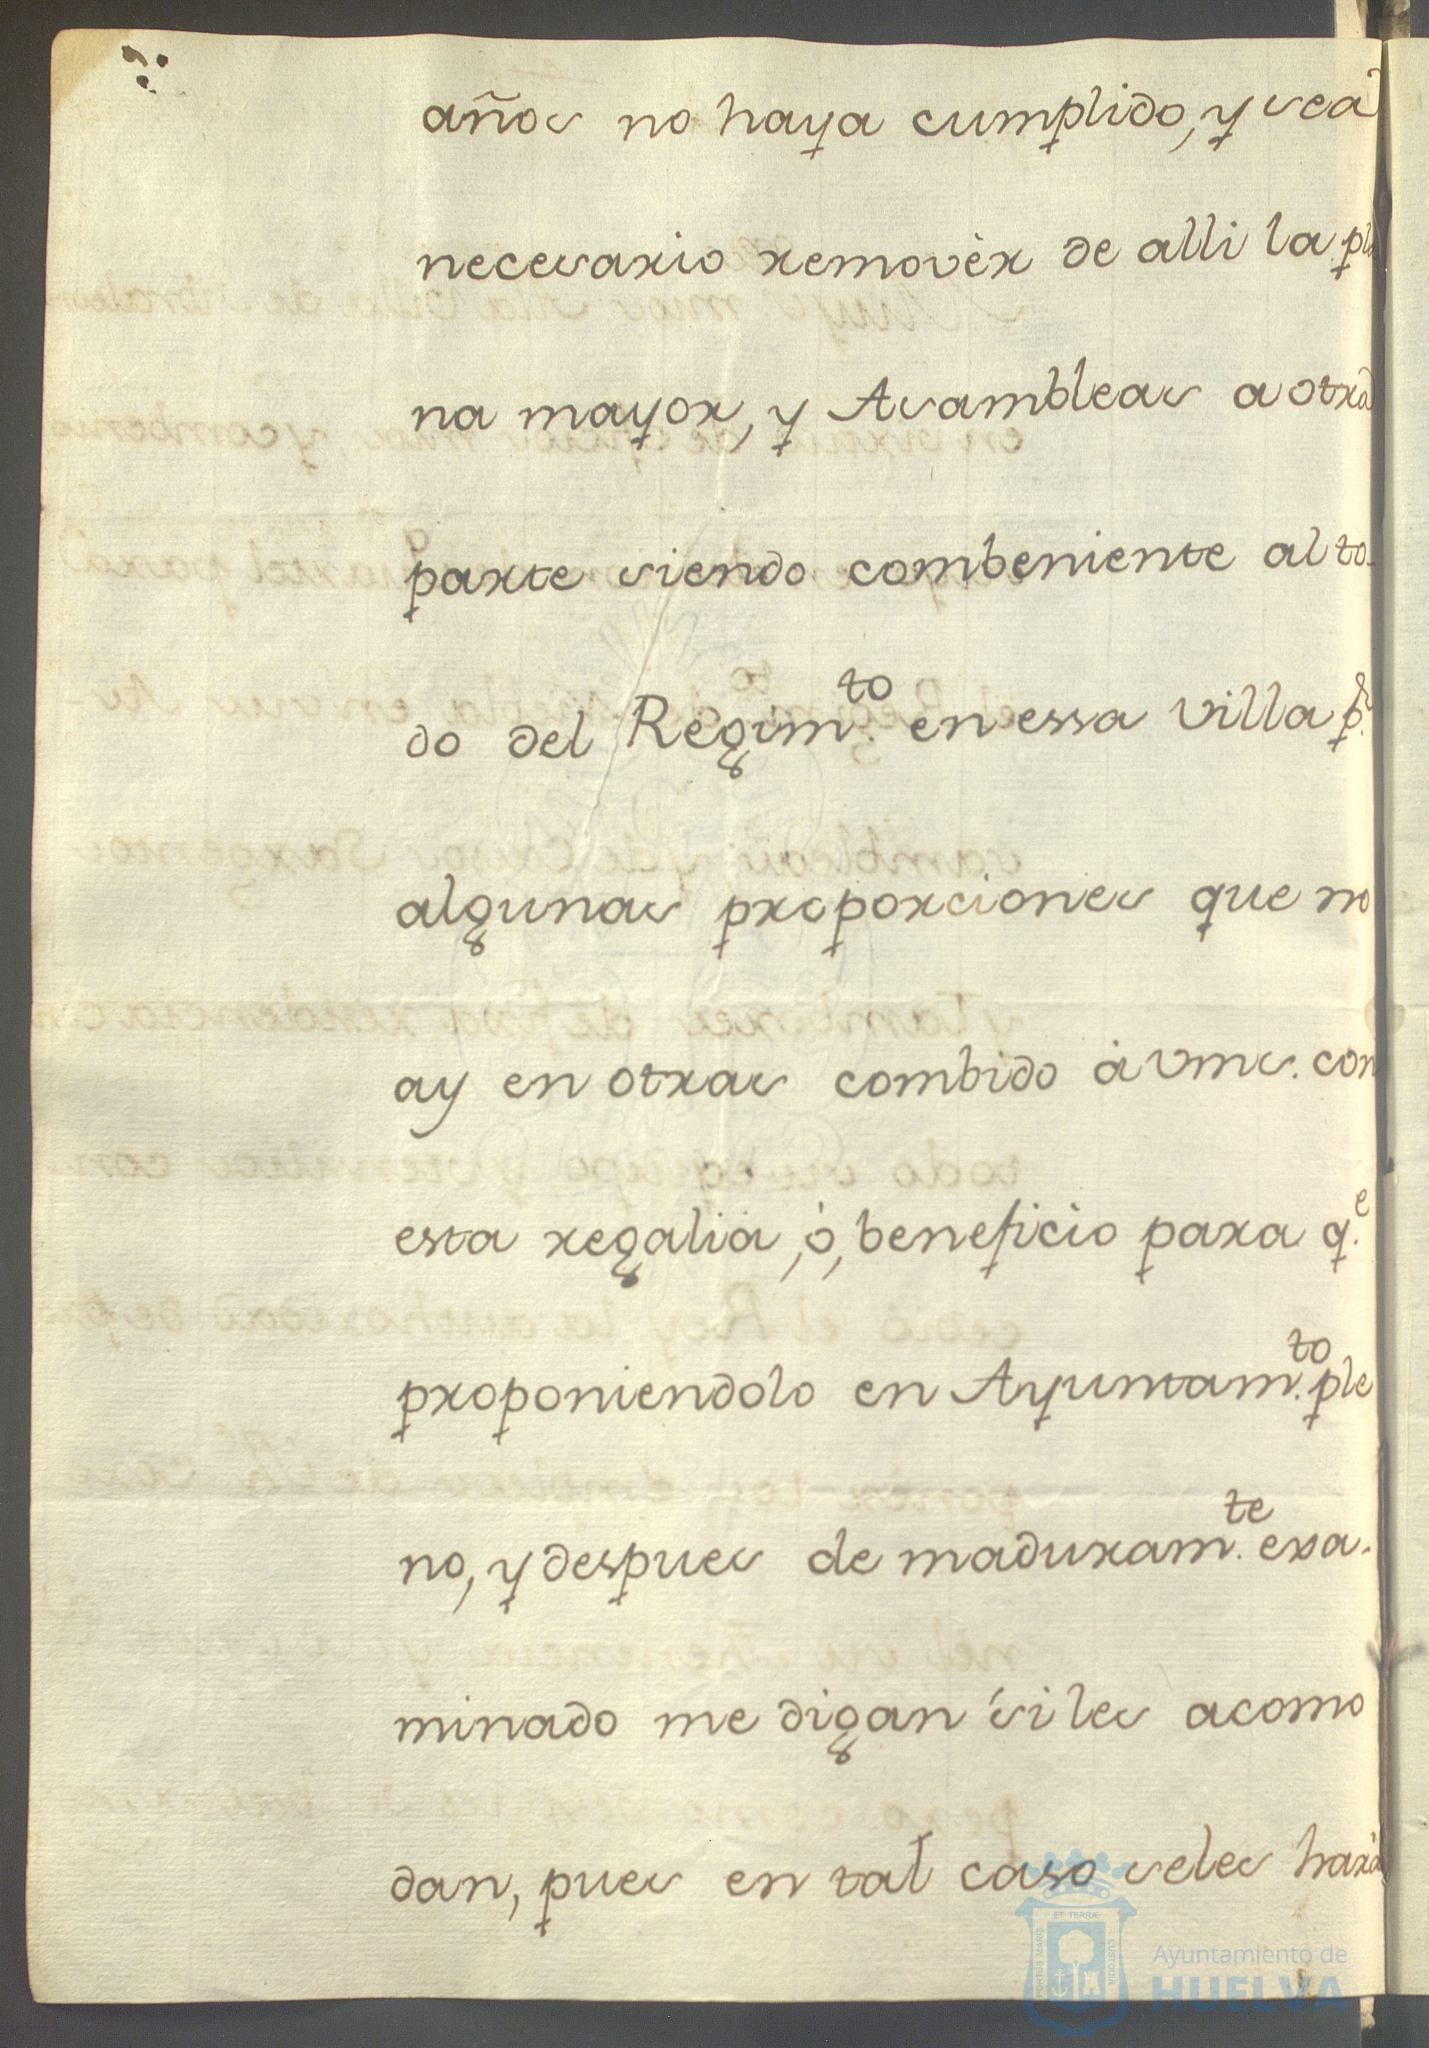 años no haya cumplido, y sea
necesario removèr de alli la pla
na mayor, y Asambleas a otra
parte siendo combeniente al to-
do del Regim.to en essa villa p.r
algunas proporciones que no
ay en otras combido à vms. con
esta regalia, ó, beneficio para q.e
proponiendolo en Ayuntam.to ple
no, y despues de maduram.te exa-
minado me digan si les acomo
dan, pues en tal caso seles harà
ET TERRÆ
PORTUS MARIS
CUSTODIA
Ayuntamiento de
HUELVA